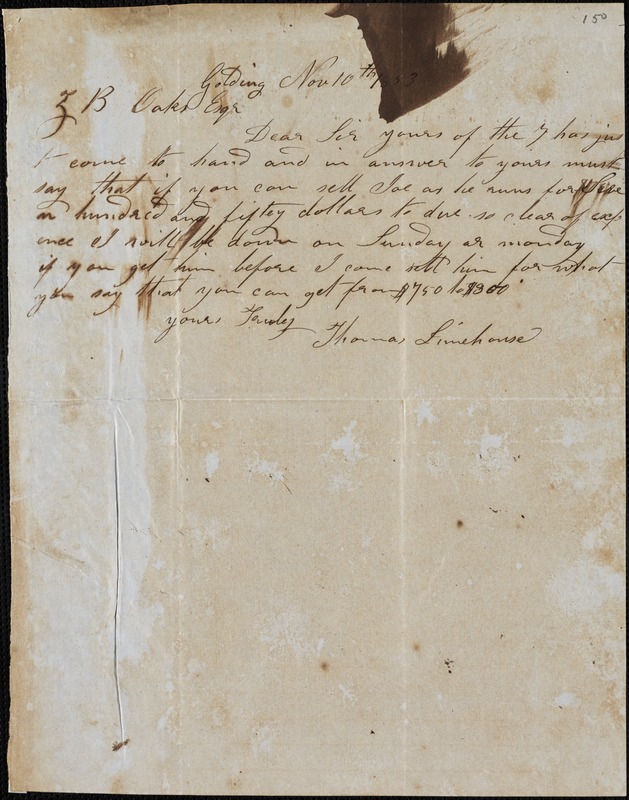 150
Nov 10th 1853
Z B Oakes Esqr
Dear Sir yours of the 7 has jus
t come to hand and in answer to yours must
say that if you can sell Joe as he runs for Seve
n hundred and fifty dollars to due so clear of exp
ence I will be down on Sunday or monday
if you get him before I come sell him for what
you say that you can get from $750 to $800
yours Truley
Thomas Limehouse